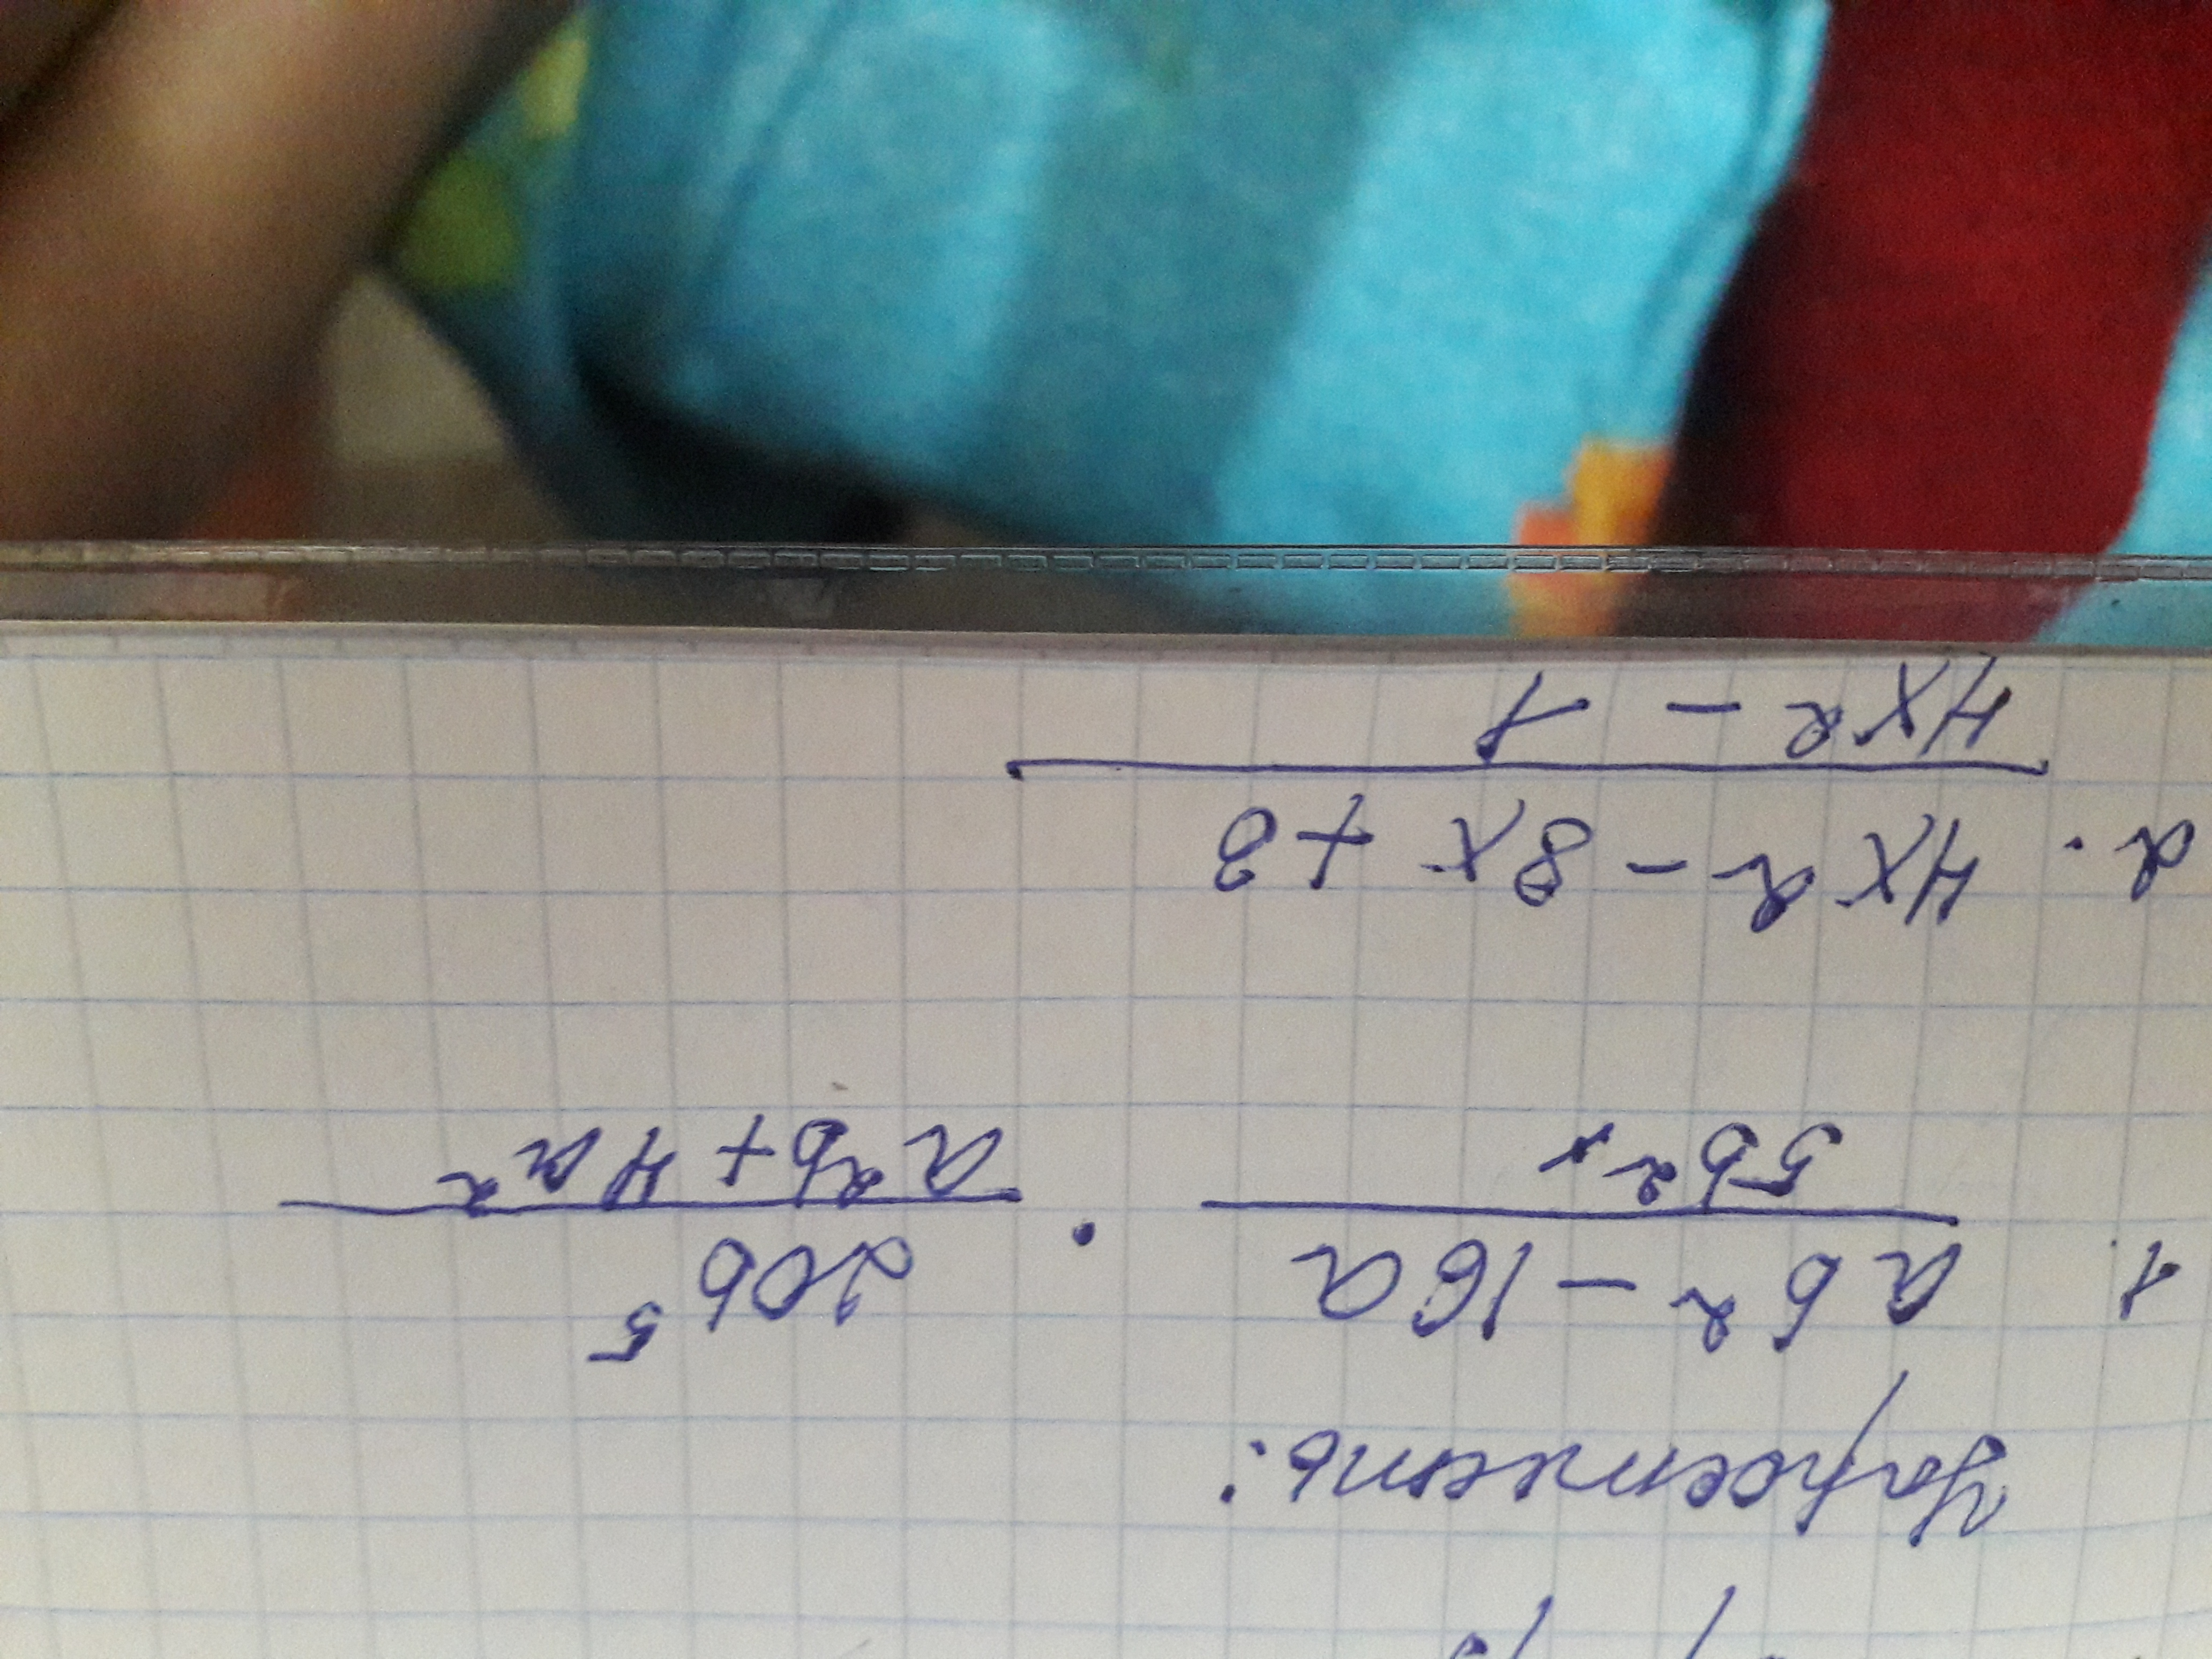 Упростить:
1. ab² - 16a / 5b²x · 20b⁵ / a²b + 4a²
2. 4x² - 8x + 3 / 4x² - 1